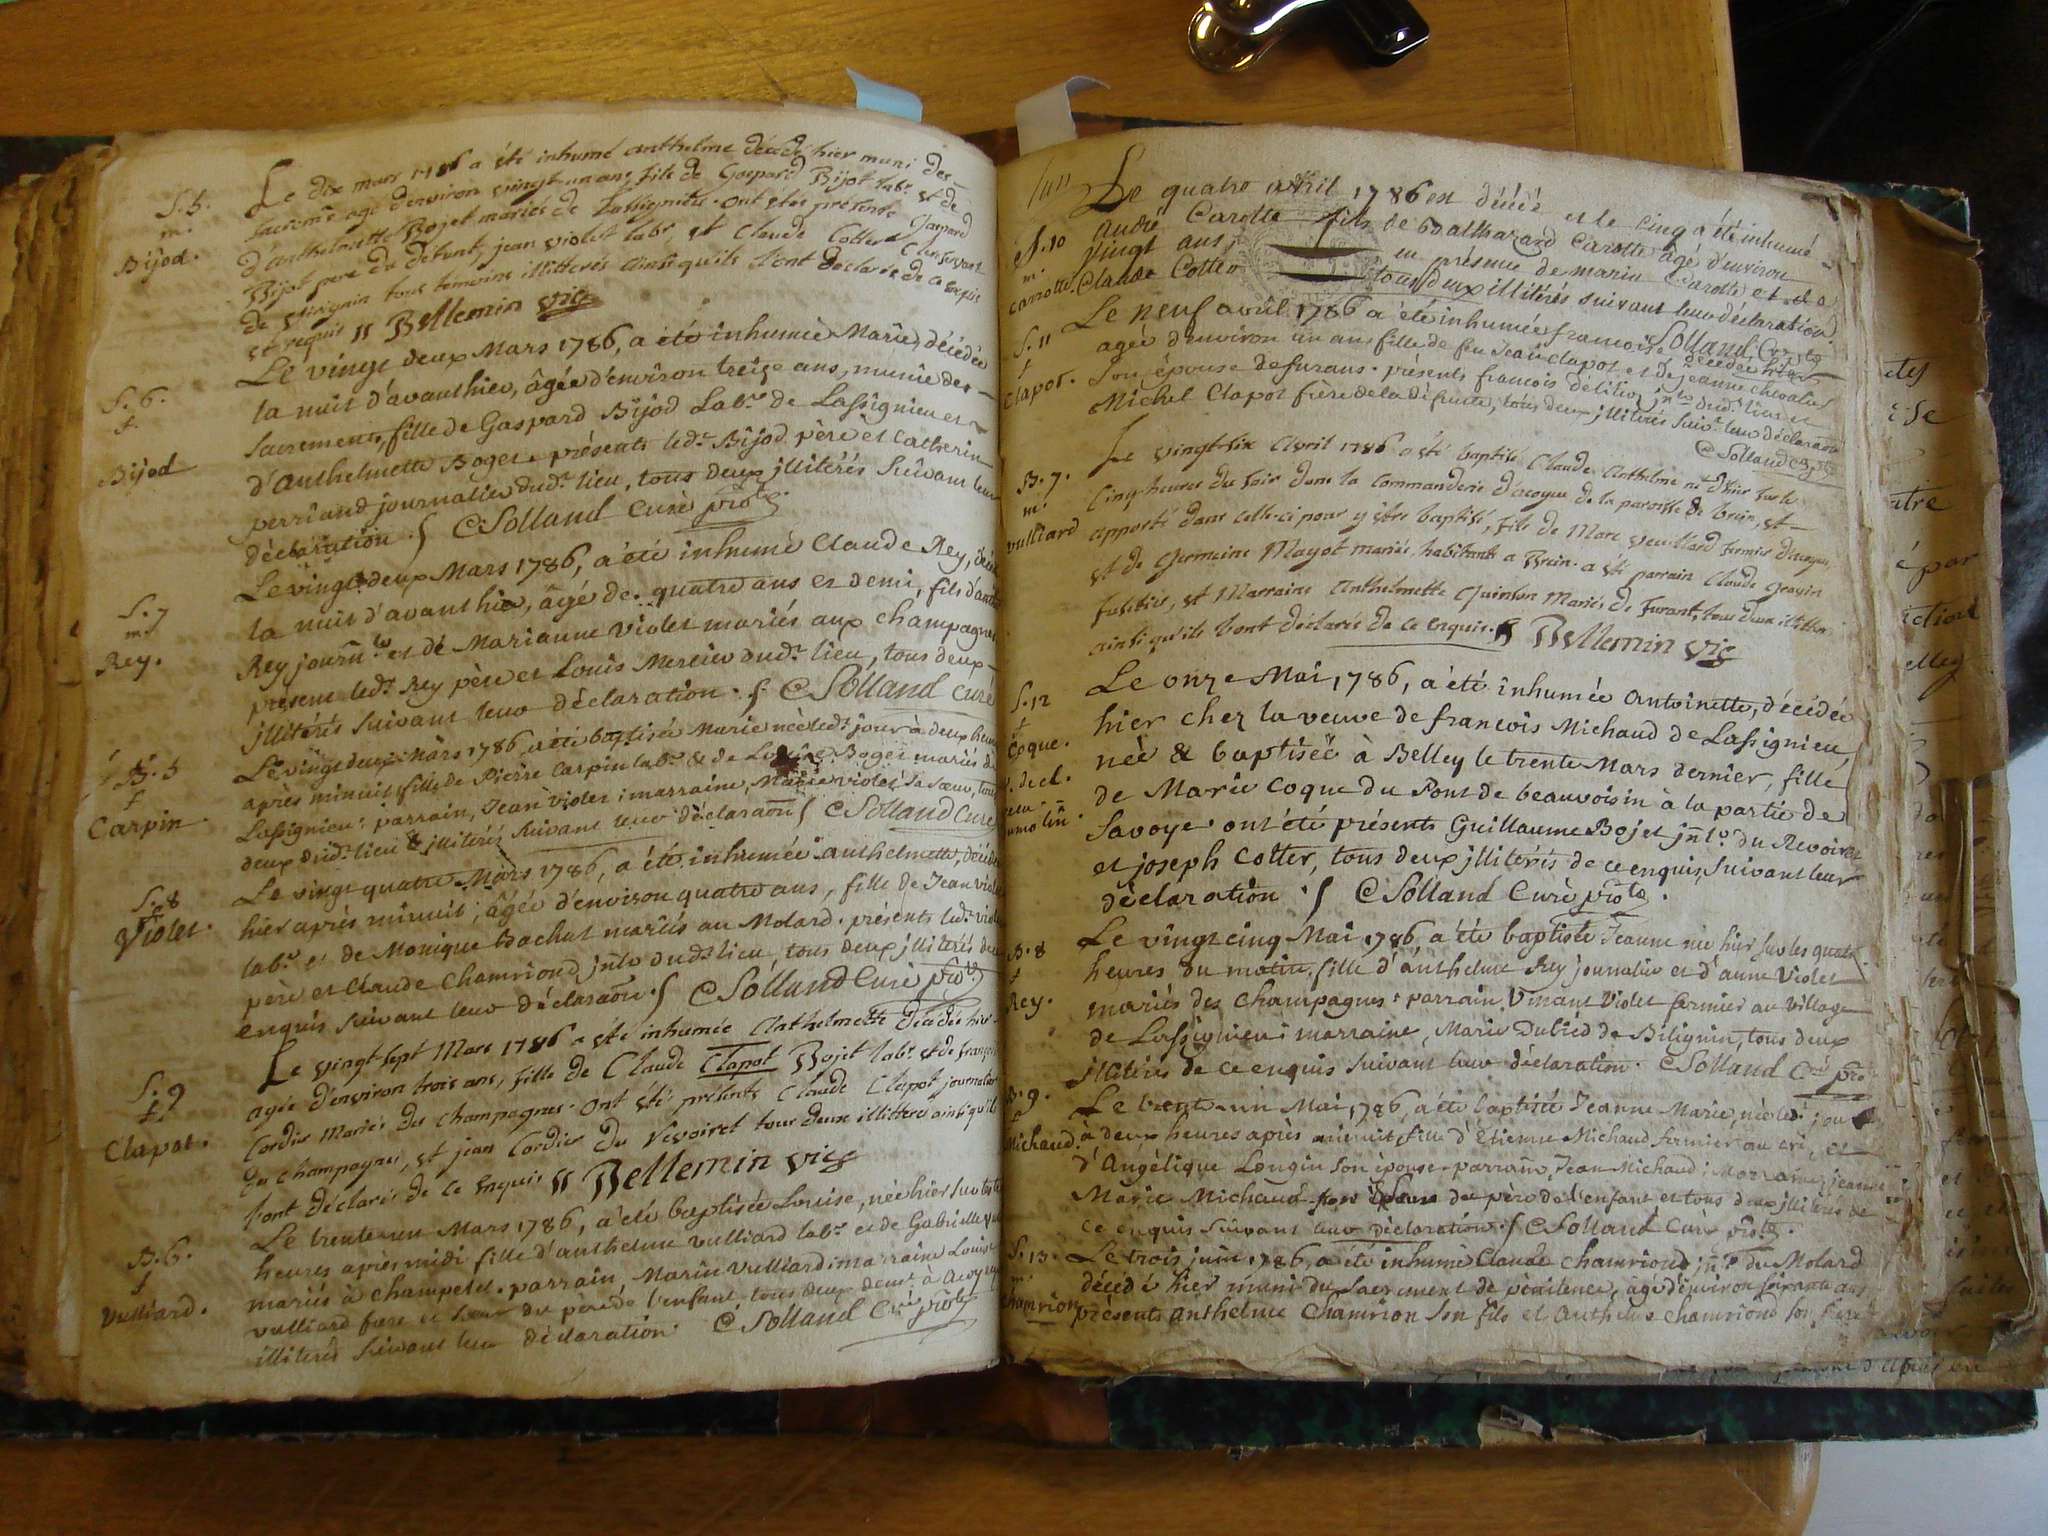 S. 5.
m.
Bijod.
Le dix mars 1786 a été inhumé anthelme décédé hier muni des
sacrem̃s agé d'environ vingt un ans fils de Gaspard Bijot labr. et de
d'anthelmette Bojet mariés de Lassignieu. ont étés présents Gaspard
Bijot père du défunt, jean violet labr. et Claude Cotter
de tous témoins illitterés ainsi qu'ils l'ont déclaré de ce
et requis // Bellemin vic
S. 6.
f.
Bijod
Le vingt deux Mars 1786, a été inhumée Marie, décédée
la nuit d'avanthier, âgée d'environ treize ans, munie des
sacrements, fille de Gaspard Bijod Labr. de Lassignieu et
d'Anthelmette Boget. présents ledt. Bijod père et Catherin
perriand journalier dudt. lieu, tous deux illitérés suivant leur
déclaration. / C Solland Curé
S. 7
m.
Rey.
Le vingt deux Mars 1786, a été inhumé Claude Rey,
la nuit d'avanthier, âgé de quatre ans et demi, fils
Rey et de Marianne Violet mariés aux champagnes
présent ledt. Rey père et Louis Mercier dudt. lieu, tous deux
illitérés suivant leur déclaration. / C Solland Curé
B. 5
f
Carpin
Le vingt deux Mars 1786, a été baptisée Marie née ledt. jour à deux heures
après minuit, fille de Pierre Carpin labr. & de Boget mariés de
Lassignieu: parrain, Jean violet; marraine, Marie violet sa sœur, tous
deux dudt. lieu & illitérés suivant leur déclaraõn / C Solland Curé
S. 8
f
Violet.
Le vingt quatre Mars 1786, a été inhumée anthelmette,
hier après minuit, âgée d'environ quatre ans, fille de Jean violet
labr. et de Monique Bachat mariés au Molard. présents ledt. violet
père et Claude Chamriond dudt. lieu, tous deux illitérés de ce
enquis suivant leur déclaraõn. / C Solland Curé
S. 9
f.
Clapot.
Le vingt sept Mars 1786 a été inhumée Anthelmette décédée hier
agée d'environ trois ans, fille de Claude Clapot Bojet labr. et de
Cordier Mariés des champagnes. ont été présents Claude Clapot journalier
du champagnes, et jean Cordier du Revoiret tous deux illitterés ainsi qu'ils
l'ont déclarés de ce enquis // Bellemin vic
B. 6.
f
Vulliard.
Le trente un Mars 1786, a été baptisée Louise, née hier sur les
heures après midi fille d'anthelme vulliard labr. et de Gabrielle
mariés à champetel. parrain, Marin vulliard; marraine Louise
vulliard frere et sœur du père de l'enfant tous deux à
illiterés suivant leur déclaration. C Solland Curé
S. 10
m.
Carrotte
Le quatre avril 1786 est décédé et le cinq a été inhumé
andré Carotte fils de Balthazard Carotte âgé d'environ
vingt ans, en présence de marin Carotte et de
Claude Cotter tous deux illitérés suivant leur déclaration.
Solland,
S. 11
f
Clapot.
Le neuf avril 1786 a été inhumée francoise décédée hier
agée d'environ un an fille de feu Jean Clapot et de jeanne chevalier
son épouse de furans. présents francois dudt. lieu et
Michel Clapot frère de la défunte, tous deux illitérés suivt. leur déclaraõn
C Solland
B. 7.
m.
vulliard
Le vingt six Avril 1786 a été baptisé Claude Anthelme né d'hier sur les
cinq heures du soir dans la Commanderie d'acoyeu de la paroisse de brein, et
apporté dans celle-ci pour y être baptisé, fils de Marc vulliard fermier d'acoyeu,
et de Germaine Mayot mariés habitants a Brein. a été parrain Claude
et Marraine Anthelmette Quinson Mariés de furant, tous deux illittérés
ainsi qu'ils l'ont déclarés de ce enquis. // Bellemin vic
S. 12
f
Coque.
Le onze Mai 1786, a été inhumée antoinette, décédée
hier chez la veuve de francois Michaud de Lassignieu,
née & baptisée à Belley le trente Mars dernier, fille
de Marie Coque du Pont de beauvoisin à la partie de
Savoye. ont été présents Guillaume Bojet du Revoiret
et joseph Cotter, tous deux illitérés de ce enquis, suivant leur
déclaration. / C Solland Curé
B. 8
f
Rey.
Le vingt cinq Mai 1786, a été baptisée Jeanne née hier sur les quatre
heures du matin, fille d'anthelme Rey journalier et d'anne Violet
mariés des Champagnes: parrain, Vincent Violet fermier au village
de Lassignieu; marraine, Marie Dubied de Bilignin, tous deux
illitérés de ce enquis suivant leur déclaration. C Solland Curé
9.
Michaud
Le trente-un Mai 1786, a été baptisée Jeanne Marie, née ledt. jour
à deux heures après minuit fille d'Etienne Michaud fermier au et
d'Angélique Longin son épouse. parrain, Jean Michaud; Marraine, jeanne
Marie Michaud du père de l'enfant et tous deux illitérés de
ce enquis suivant leur déclaration. / C Solland Curé
S. 13.
m
Chamrion
Le trois juin 1786, a été inhumé Claude Chamriond du Molard
décédé hier muni du Sacrement de pénitence, âgé d'environ soixante ans
présents anthelme Chamrion son fils et Anthelme Chamriond son frere